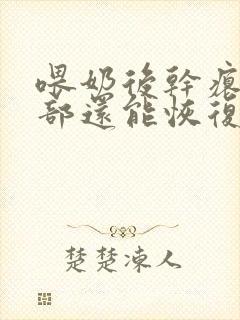 喂奶後幹癟
部還能恢復
楚楚凍人